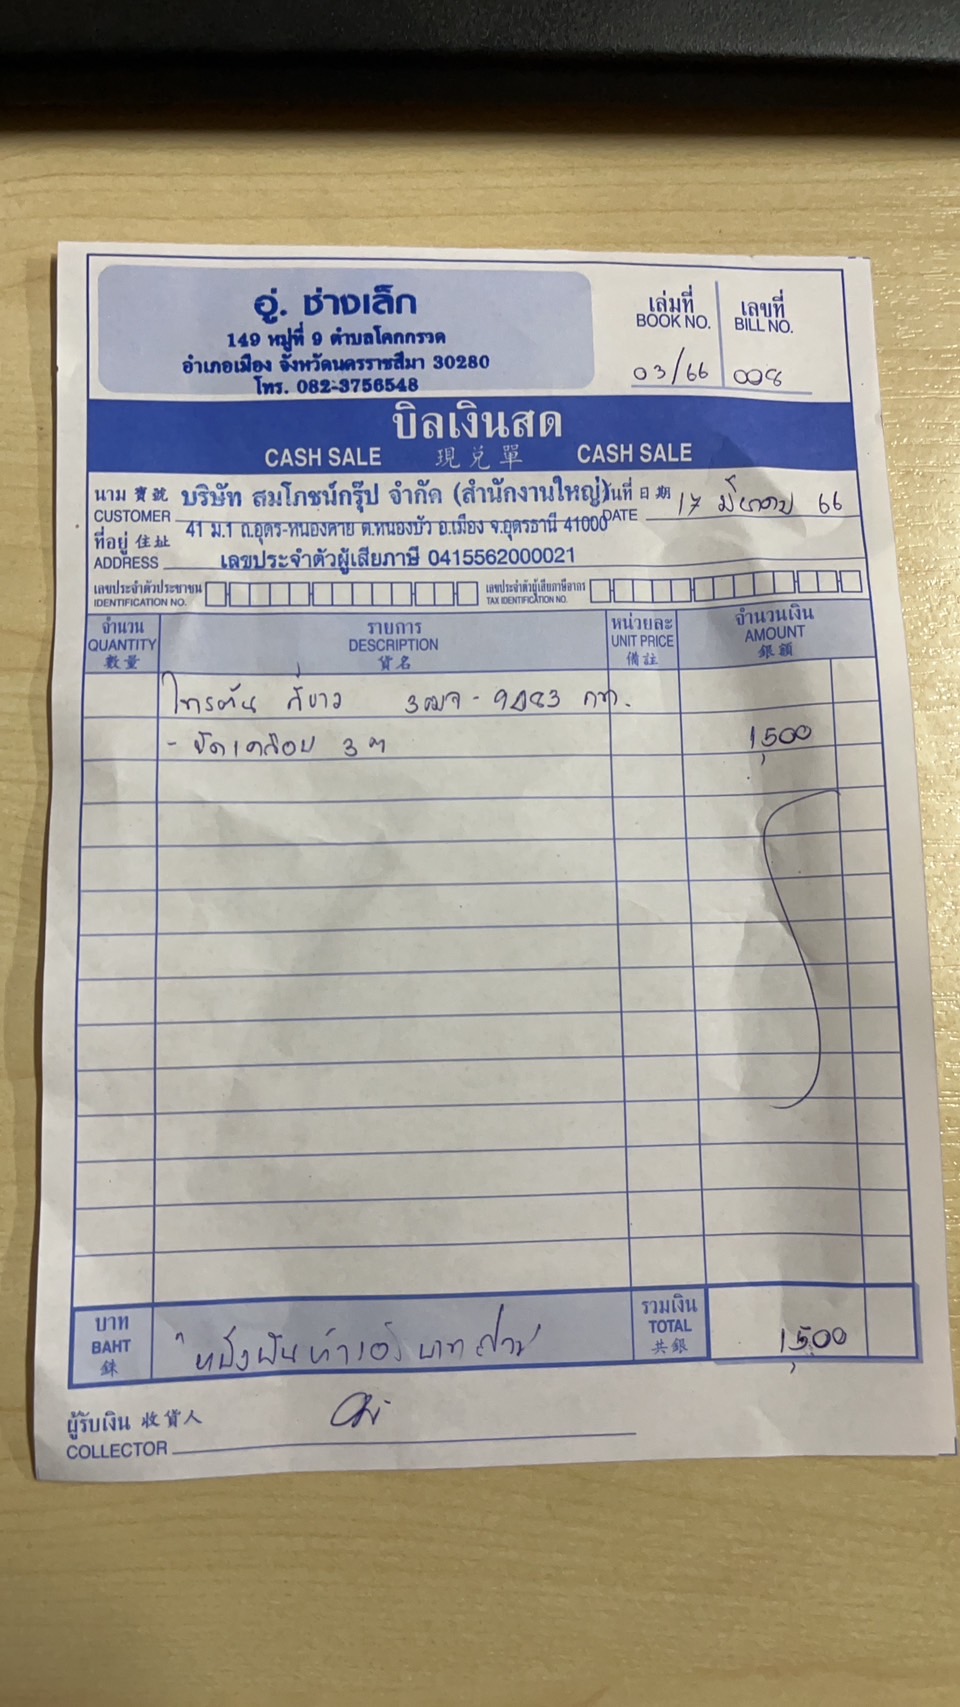 อู่. ช่างเล็ก
149 หมู่ที่ 9 ตำบลโคกกรวด
อำเภอเมือง จังหวัดนครราชสีมา 30280
โทร. 082-3756548
เล่มที่ เลขที่
BOOK NO. BILL NO.
03/66 008
บิลเงินสด
CASH SALE 現兌單 CASH SALE
นาม 寶號 บริษัท สมโภชน์กรุ๊ป จำกัด (สำนักงานใหญ่) วันที่ 日期 17 มีนาคม 66
CUSTOMER DATE
41 ม.1 ถ.อุดร-หนองคาย ต.หนองบัว อ.เมือง จ.อุดรธานี 41000
ที่อยู่ 住址
ADDRESS เลขประจำตัวผู้เสียภาษี 0415562000021
เลขประจำตัวประชาชน เลขประจำตัวผู้เสียภาษีอากร
IDENTIFICATION NO. TAX IDENTIFICATION NO.
จำนวน รายการ หน่วยละ จำนวนเงิน
QUANTITY DESCRIPTION UNIT PRICE AMOUNT
數量 貨名 備註 銀額
ไทรตัน สีขาว
- ขัดเคลือบ 1,500
บาท รวมเงิน
BAHT หนึ่งพันห้าร้อยบาทถ้วน TOTAL 1,500
銖 共銀
ผู้รับเงิน 收貨人
COLLECTOR